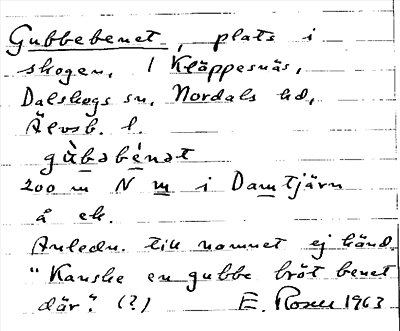 Gubbebenet, plats i
skogen, i Kläppesnäs,
Dalskogs sn, Nordals hd,
Älvsb. l.
gùbəbénət
200 m N m i Damtjärn
å ek.
Anledn. till namnet ej känd.
"Kanske en gubbe bröt benet
där". (?) E. Rosen 1963